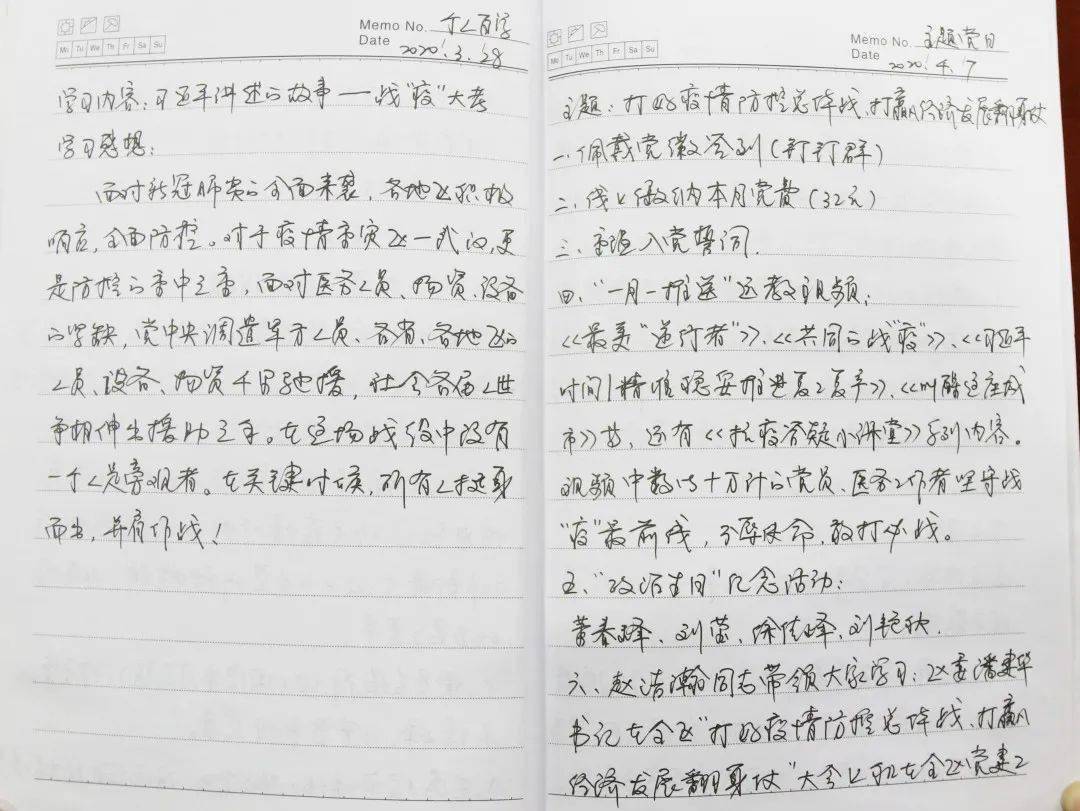 Memo No. 个人自学
Mo Tu We Th Fr Sa Su
Date 2020.3.28
学习内容：习近平讲述的故事——战“疫”大考
学习感想：
面对新冠肺炎的全面来袭，各地区积极
响应，全面防控。对于疫情重灾区—武汉，更
是防控的重中之重，面对医务人员、物资、设备
的紧缺，党中央调遣军方人员、各省、各地区的
人员、设备、物资千里驰援，社会各届人世
争相伸出援助之手。在这场战役中没有
一个人是旁观者。在关键时候，所有人挺身
而出，并肩作战！
Memo No. 主题党日
Mo Tu We Th Fr Sa Su
Date 2020.4.7
主题：打好疫情防控总体战，打赢经济发展翻身仗
一、佩戴党徽签到（钉钉群）
二、线上缴纳本月党费（32元）
三、重温入党誓词.
四、“一月一推送”远教视频：
《最美“逆行者”》、《共同的战“疫”》、《习近平
时间|精准稳妥推进复工复产》、《叫醒这座城
市》等，还有《抗疫答疑小课堂》系列内容。
视频中数以十万计的党员、医务工作者坚守战
“疫”最前线，不辱使命，敢打必战。
五、“政治生日”纪念活动：
春峰、刘莹、徐佳峰、刘艳秋.
六、赵浩瀚同志带领大家学习：区委潘建华
书记在全区“打好疫情防控总体战、打赢
经济发展翻身仗”大会上和在全区党建工